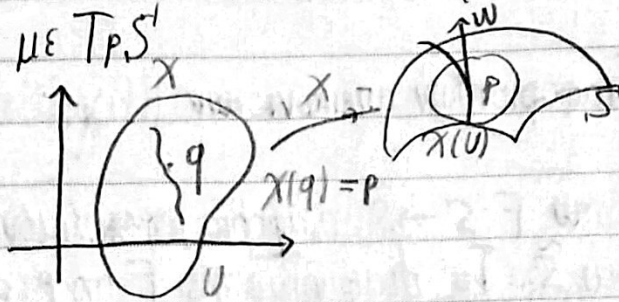 με TpS
X
q
U
X
X(q) = p
w
p
S
X(U)